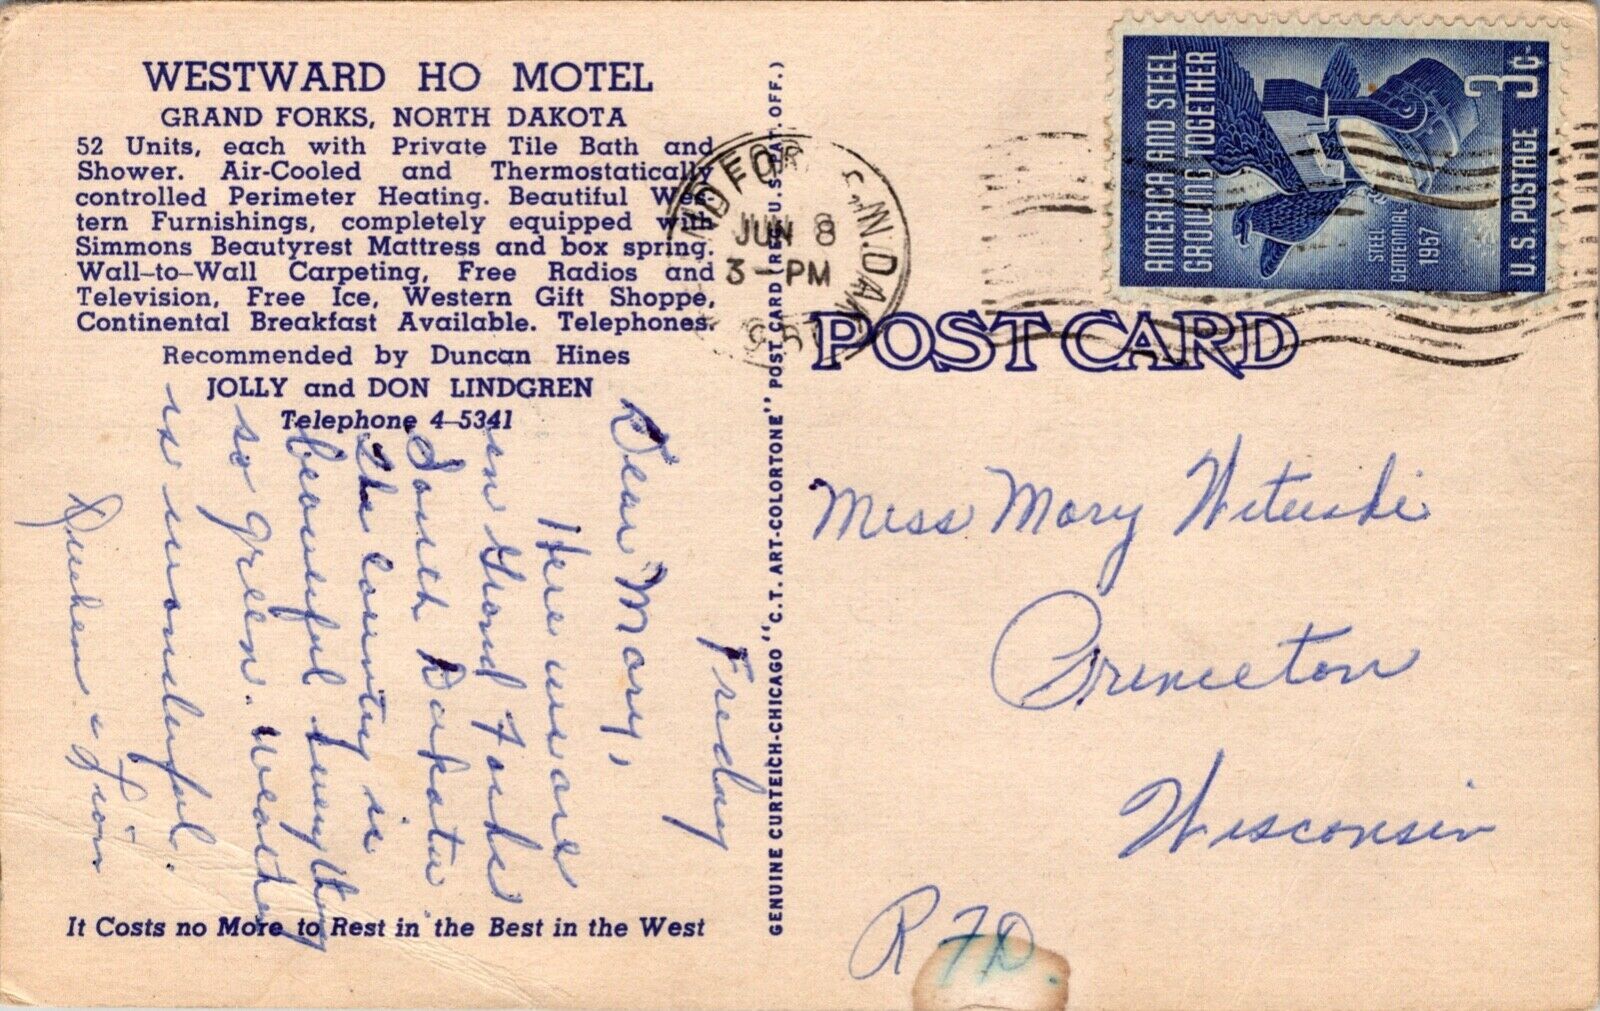 WESTWARD HO MOTEL
GRAND FORKS, NORTH DAKOTA
52 Units, each with Private Tile Bath and
Shower. Air-Cooled and Thermostatically
controlled Perimeter Heating. Beautiful Wes-
tern Furnishings, completely equipped with
Simmons Beautyrest Mattress and box spring.
Wall-to-Wall Carpeting, Free Radios and
Television, Free Ice, Western Gift Shoppe,
Continental Breakfast Available. Telephones.
Recommended by Duncan Hines
JOLLY and DON LINDGREN
Telephone 4-5341
Friday
Dear Mary,
Here we are
in Grand Forks
South Dakota
The country is
beautiful everything
so green. Weather
is wonderful.
It Costs no More to Rest in the Best in the West
GENUINE CURTEICH-CHICAGO "C.T. ART-COLORTONE" POST CARD (REG. U.S. PAT. OFF.)
JUN 8
3-PM
N.DAK
POST CARD
AMERICA AND STEEL
GROWING TOGETHER
STEEL
CENTENNIAL
1957
U.S. POSTAGE 3c
Miss Mary
Princeton
Wisconsin
R F D.